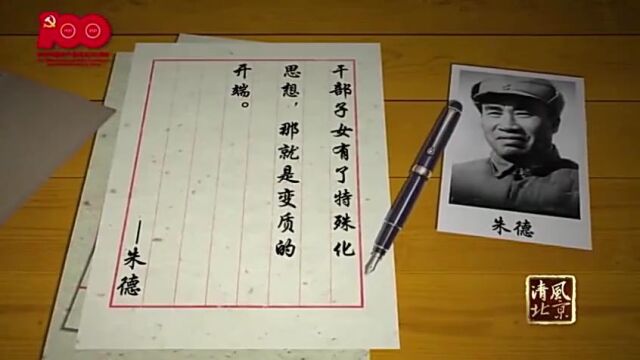 100
干部子女有了特殊化
思想，那就是变质的
开端。
——朱德
朱德
清风
北京